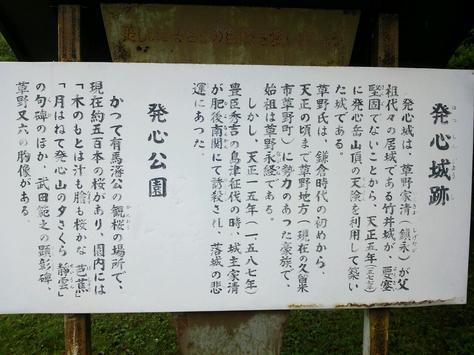 発心城跡
発心城は、草野家清（鎮永）が父
祖代々の居城である竹井城が、要塞
堅固でないことから、天正五年（一五七七）
に発心岳山頂の天険を利用して築い
た城である。
草野氏は、鎌倉時代の初めから、
天正の頃まで草野地方（現在の久留米
市草野町）に勢力のあった豪族で、
始祖は草野永経である。
しかし、天正一五年（一五八七年）
豊臣秀吉の島津征伐の時、城主家清
が肥後南関にて誘殺され、落城の悲
運にあった。
発心公園
かつて有馬藩公の観桜の場所で、
現在約五百本の桜があり、園内には
「木のもとは汁も膾も桜かな 芭蕉」
「月はねて発心山の夕さくら 靜雲」
の句碑のほか、武田範之の顕彰碑、
草野又六の胸像がある。